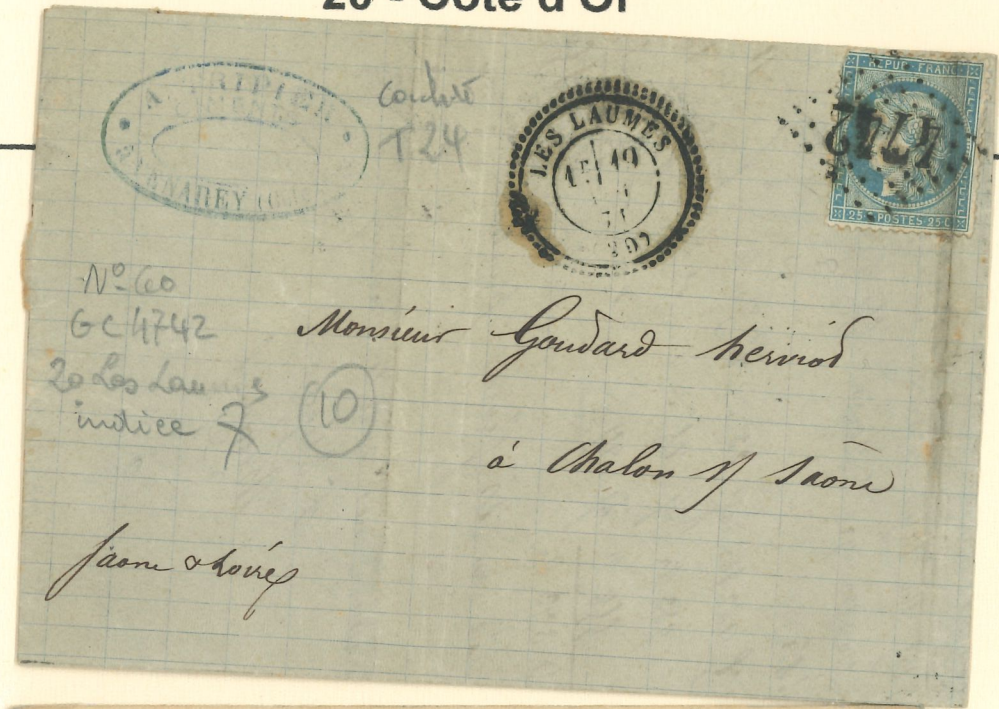 20 - Côte d'Or
CIMENTS
VENAREY
T24
LES LAUMES
1E 19
71
(20)
REPUB · FRANC
4742
25 C POSTES 25 C
N° 60
GC 4742
20 Les Laumes
indice 7
10
Monsieur Goudard herriod
à Chalon s/ Saône
Saone & Loire